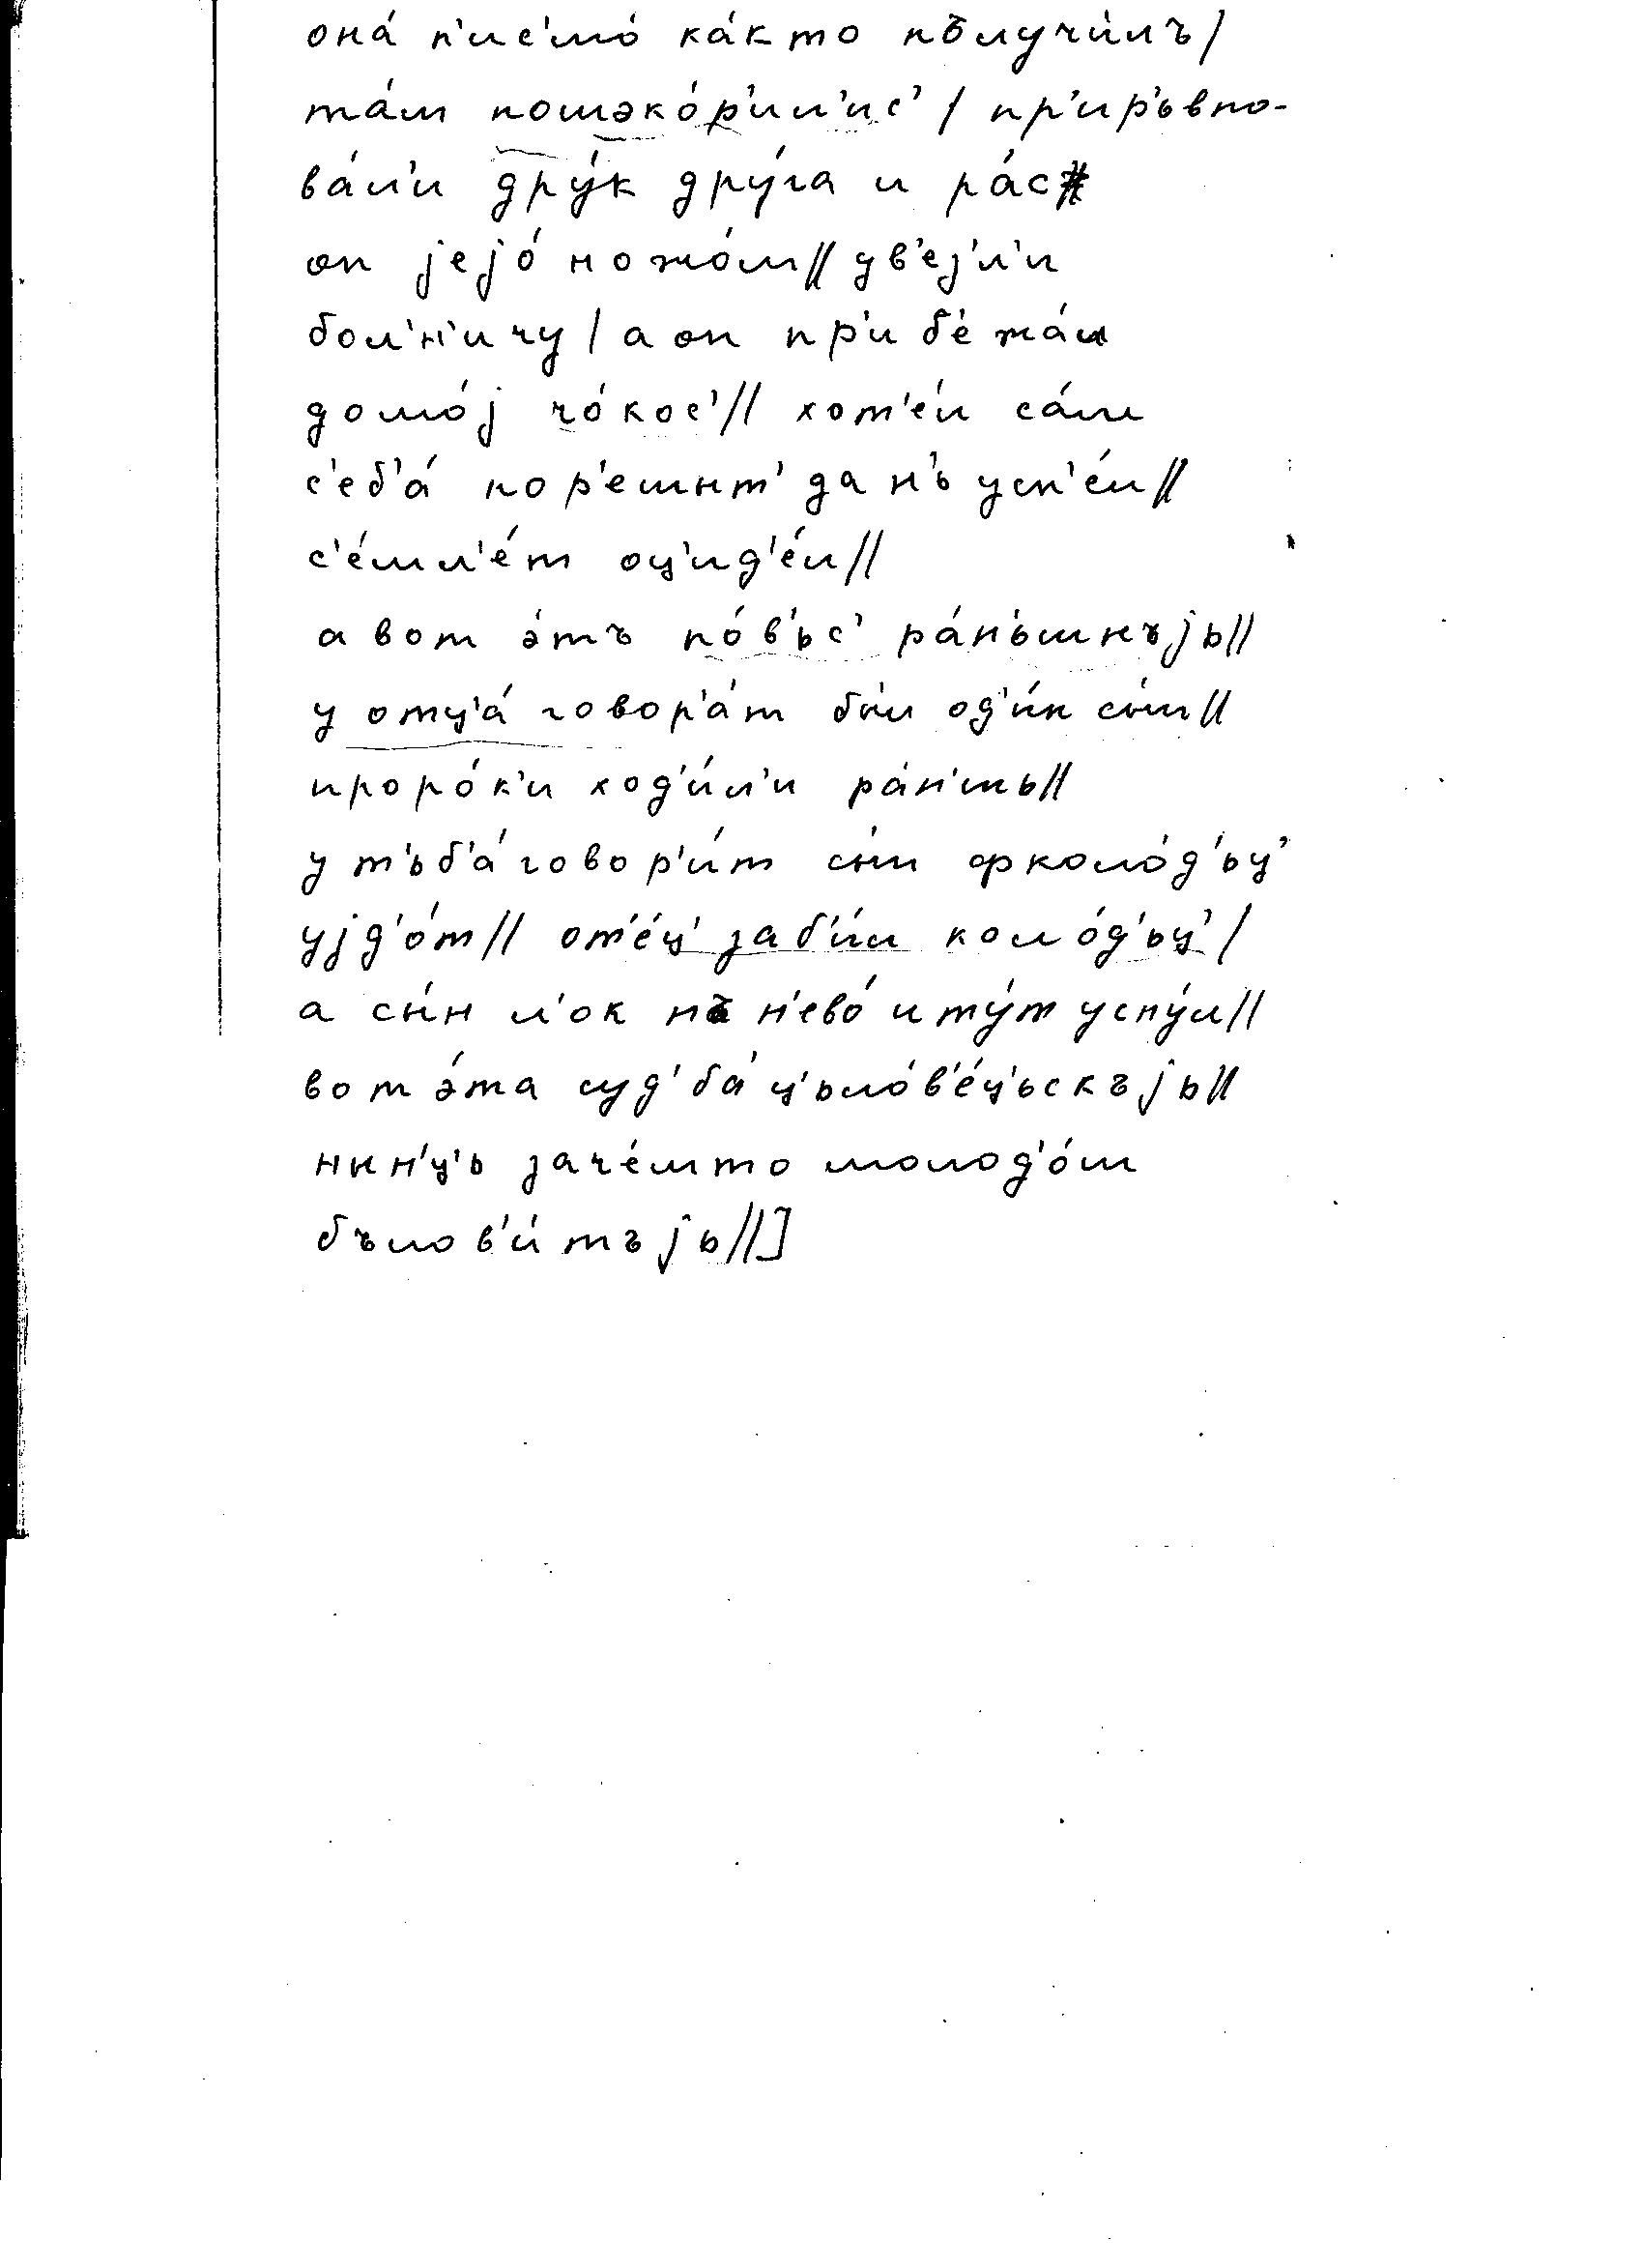 она́ п'ис'мо́ ка́к то пълучи́лъ /
та́м пошэко́р'ил'ис' / пр'ир'ьвно-
ва́л'и дру́к дру́га и ра́с
он jejо́ ножо́м // ув'ез'л'и
бол'н'ичу / а он пр'иб'ежа́л
домо́j чо́кос' // хот'е́л са́м
с'еб'а́ пор'ешыт' да н'ь усп'е́л //
с'е́мл'е́т оц'ид'е́л //
а вот э́тъ по́в'ьс' ра́н'ьшнъjь //
у отц'а́ говор'а́т бы́л од'и́н сы́н //
проро́к'и ход'и́л'и ра́н'шь //
у т'ьб'а́ говор'и́т сы́н ф коло́д'ьц'
уjд'о́т // от'е́ц' заб'и́л коло́д'ьц' /
а сы́н л'ок на н'ево́ и ту́т усну́л //
вот э́та суд'ба́ ц'ьлов'е́ц'ьскъjь //
нын'ц'ь заче́мто молод'о́ш
бълов'и́тъjь //]